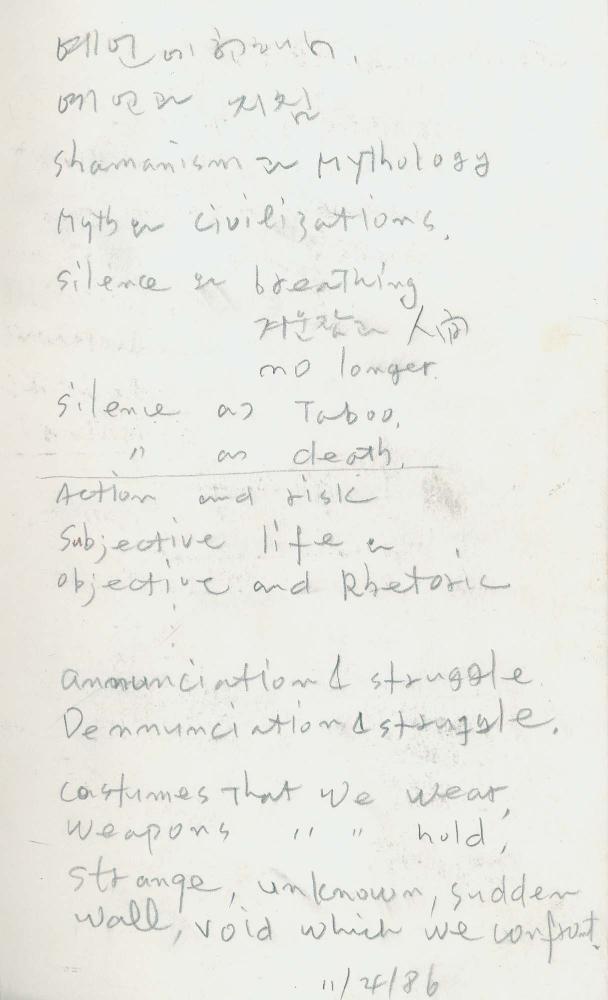 예언
예언과 지침
shamanism 과 Mythology
Myth 와 civilizations.
silence 와 breathing
人間
no longer.
silence as Taboo,
" as death.
Action and risk
Subjective life 와
objective and Rhetoric
annunciation & struggle
Dennunciation & struggle.
costumes that we wear,
weapons " " hold,
strange, unknown, sudden
wall, void which we confront.
11/4/86